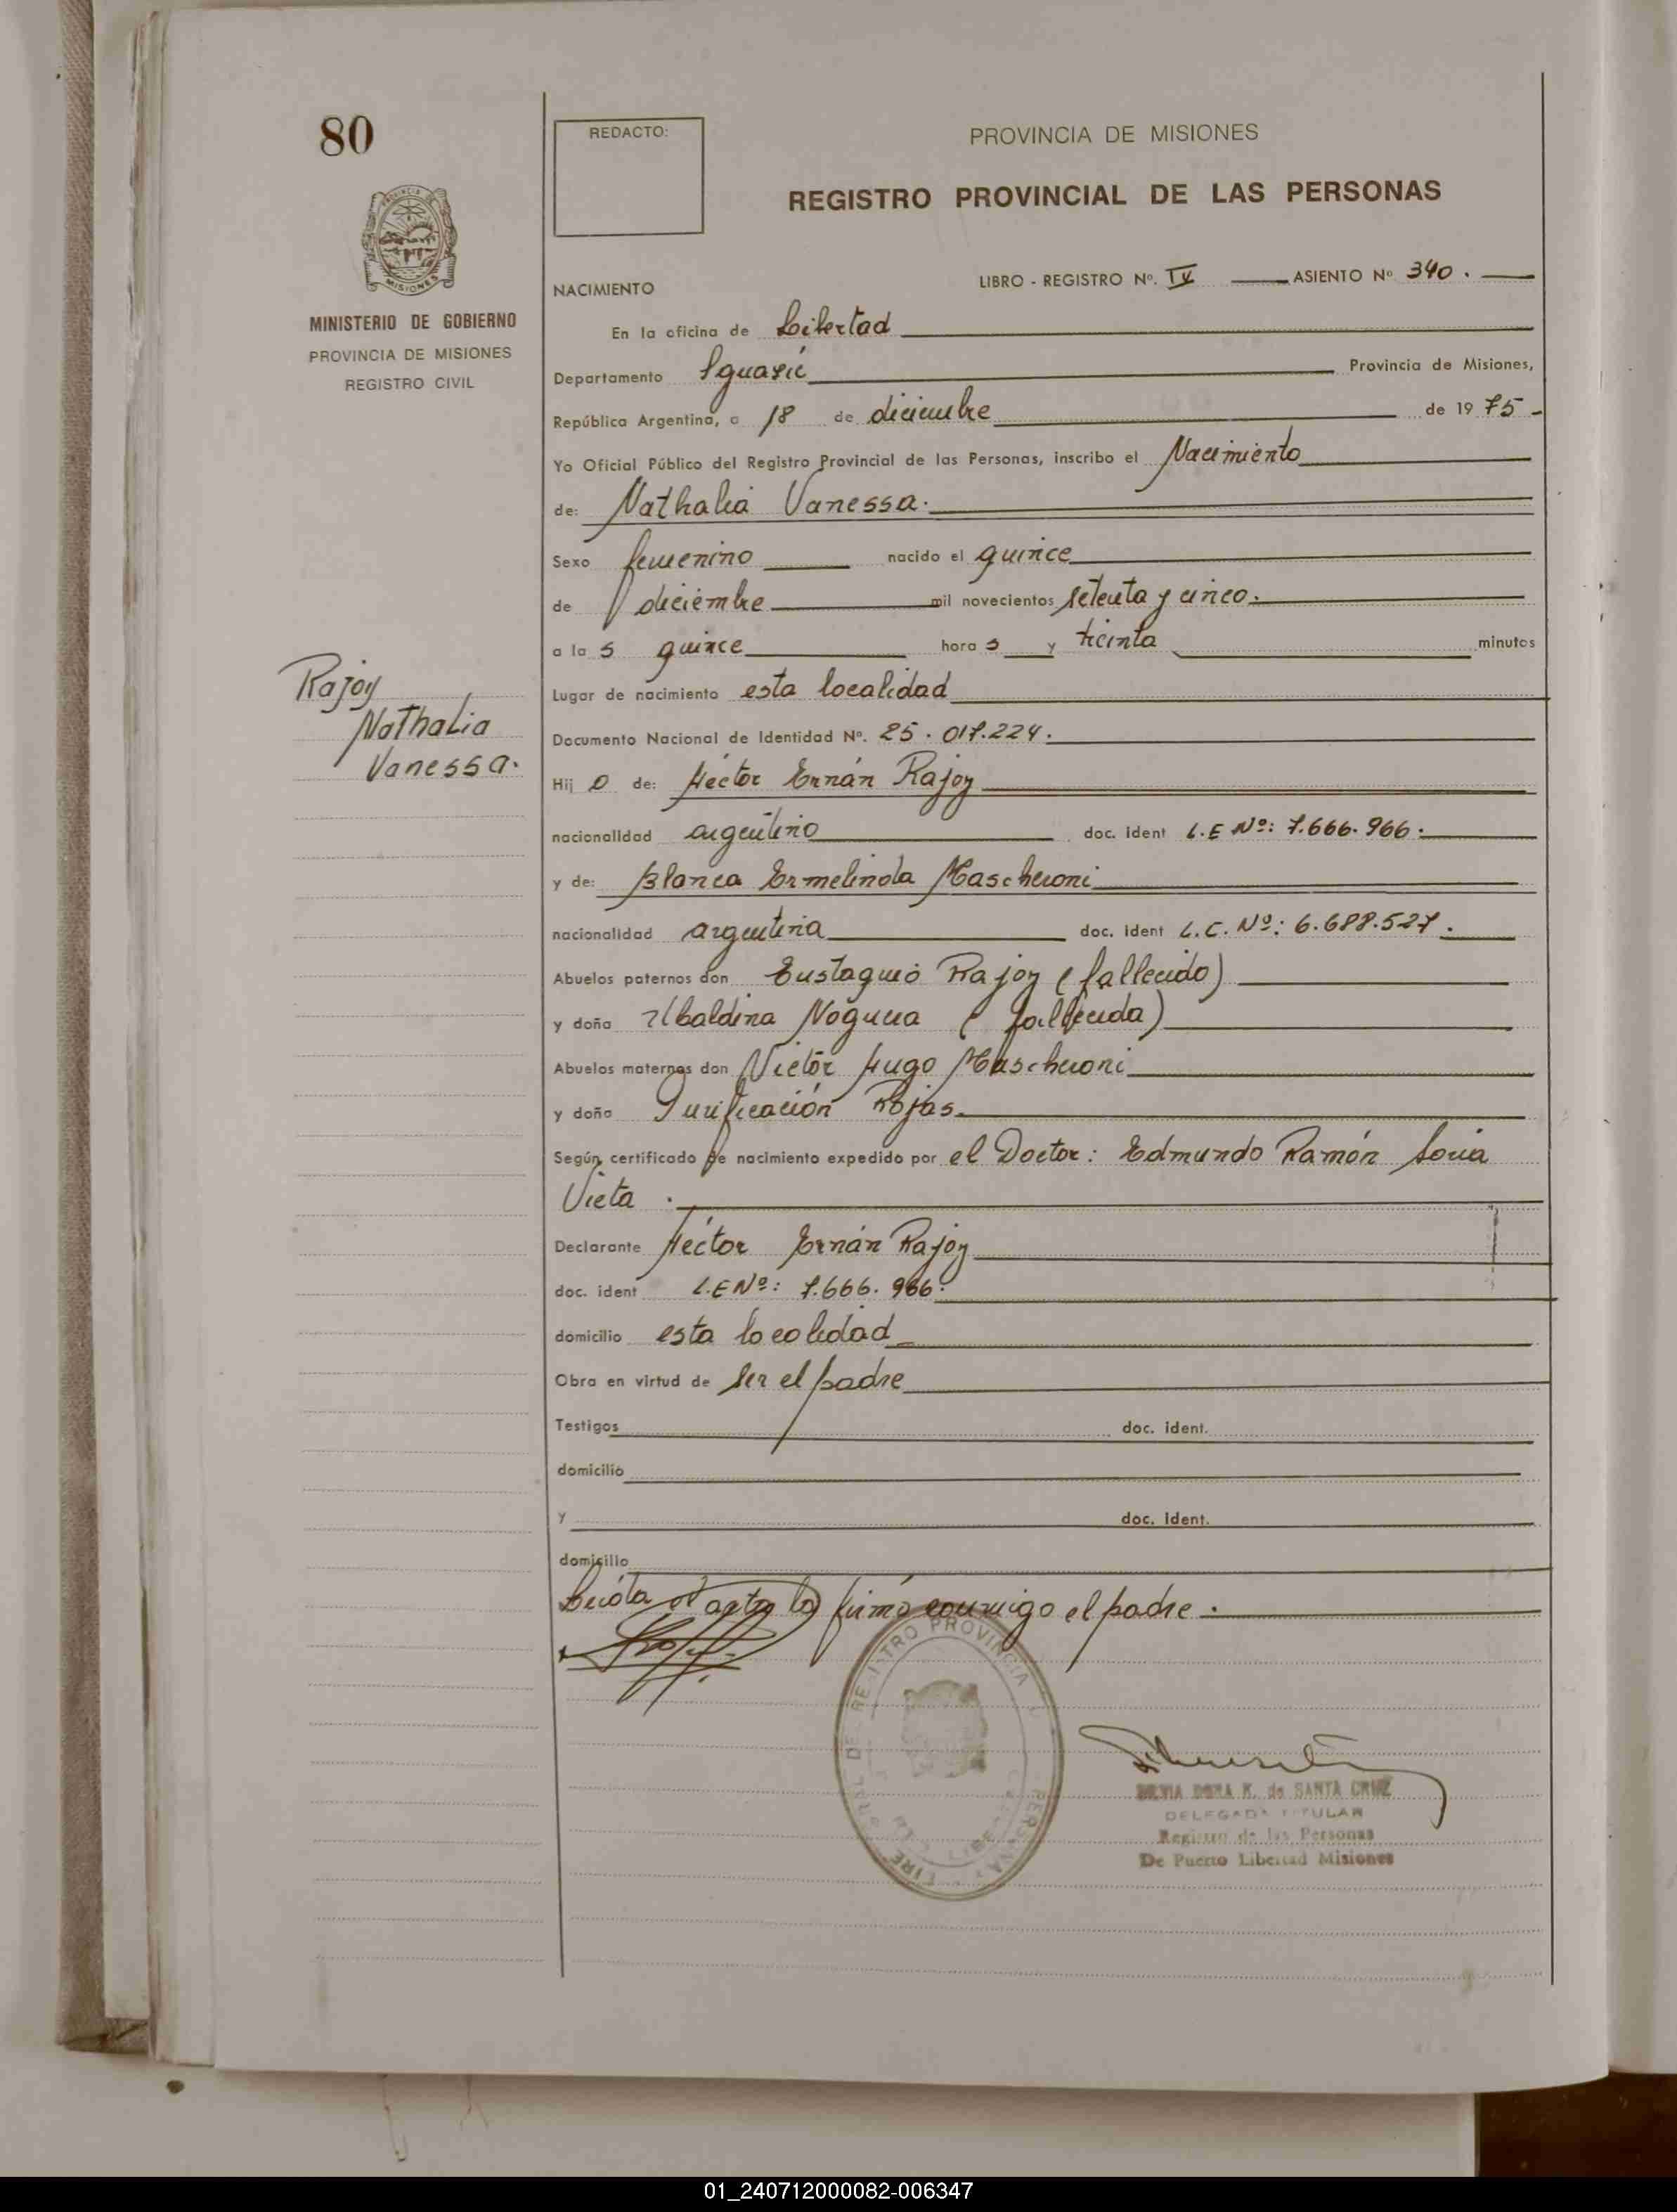 80
REDACTO:
PROVINCIA DE MISIONES
REGISTRO PROVINCIAL DE LAS PERSONAS
MISIONES
MINISTERIO DE GOBIERNO
PROVINCIA DE MISIONES
REGISTRO CIVIL
NACIMIENTO
LIBRO - REGISTRO Nº. IV ASIENTO Nº 340.
En la oficina de Libertad
Departamento Iguazú Provincia de Misiones,
República Argentina, a 18 de diciembre de 1975-
Yo Oficial Público del Registro Provincial de las Personas, inscribo el Nacimiento
de: Nathalia Vanessa.
Sexo femenino nacido el quince
de diciembre mil novecientos setenta y cinco.
a la s quince hora s y treinta minutos
Rajoy
Nathalia
Vanessa.
Lugar de nacimiento esta localidad
Documento Nacional de Identidad Nº. 25.017.224.
Hij o de: Héctor Ernán Rajoy
nacionalidad argentino doc. ident L.E Nº: 7.666.966.
y de: Blanca Ermelinda Mascheroni
nacionalidad argentina doc. ident L.C. Nº: 6.688.527.
Abuelos paternos don Eustaquio Rajoy (fallecido)
y doña Ubaldina Noguera (fallecida)
Abuelos maternos don Victor Hugo Mascheroni
y doña Purificación Rojas.
Según certificado de nacimiento expedido por el Doctor: Edmundo Ramón Soria
Vieta.
Declarante Héctor Ernán Rajoy
doc. ident L.E Nº: 7.666.966.
domicilio esta localidad
Obra en virtud de ser el padre
Testigos doc. ident.
domicilio
y doc. ident.
domicilio
Leída el acta la firmó conmigo el padre.
SILVIA DORA K. de SANTA CRUZ
DELEGADA TITULAR
Registro de las Personas
De Puerto Libertad Misiones
01_240712000082-006347